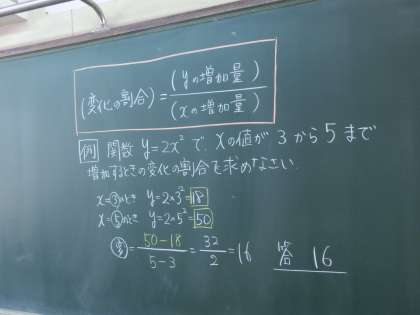 (変化の割合) = (yの増加量) / (xの増加量)
例 関数 y=2x² で、xの値が 3 から 5 まで
増加するときの変化の割合を求めなさい.
x=③のとき y=2×3²=18
x=⑤のとき y=2×5²=50
= 50-18 / 5-3 = 32 / 2 = 16 答 16